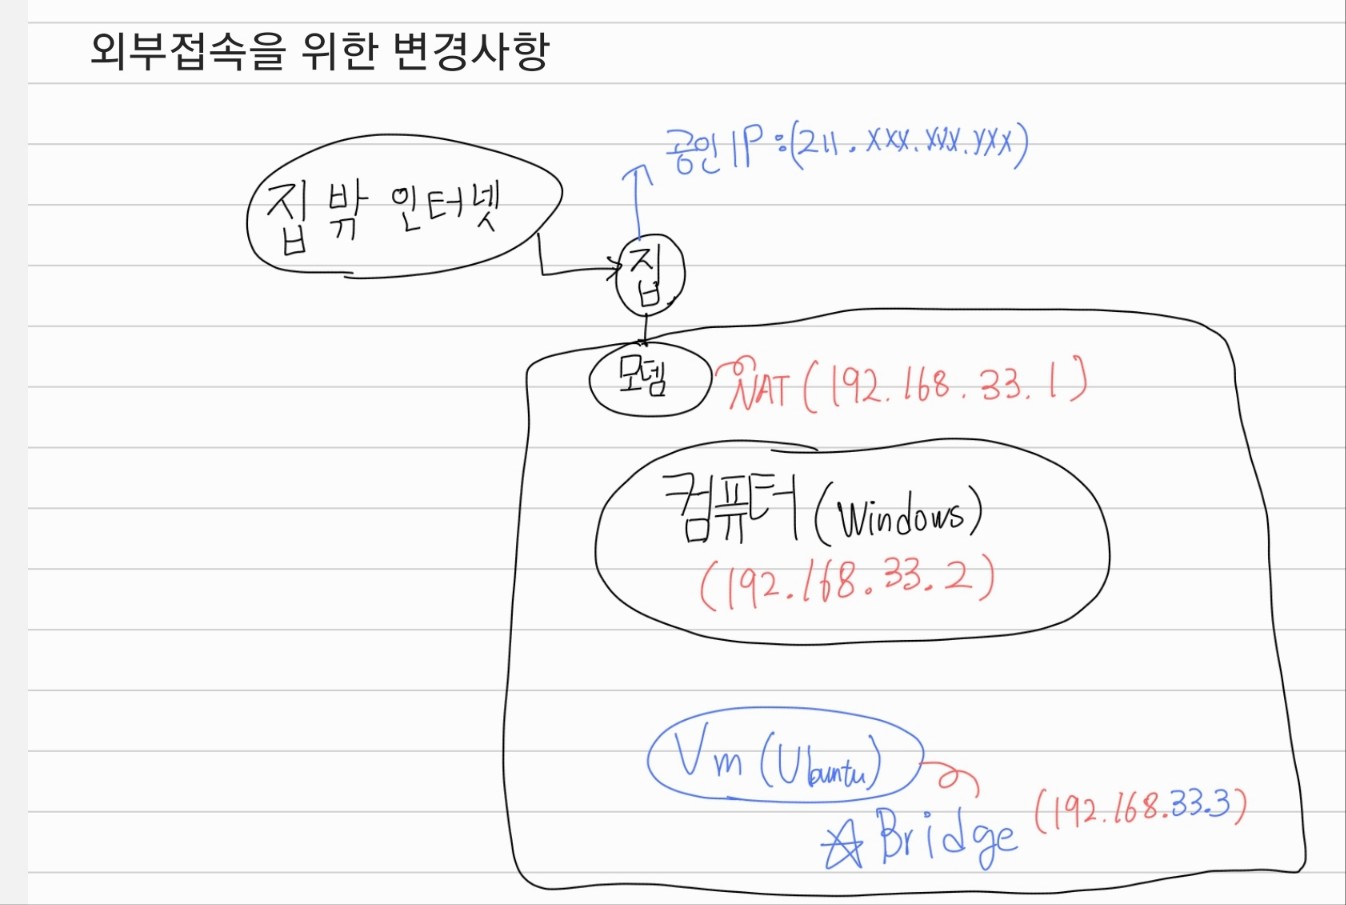 외부접속을 위한 변경사항
공인 IP : (211.xxx.xxx.xxx)
집 밖 인터넷
집
모뎀
NAT (192.168.33.1)
컴퓨터 (Windows)
(192.168.33.2)
Vm (Ubuntu)
☆ Bridge (192.168.33.3)